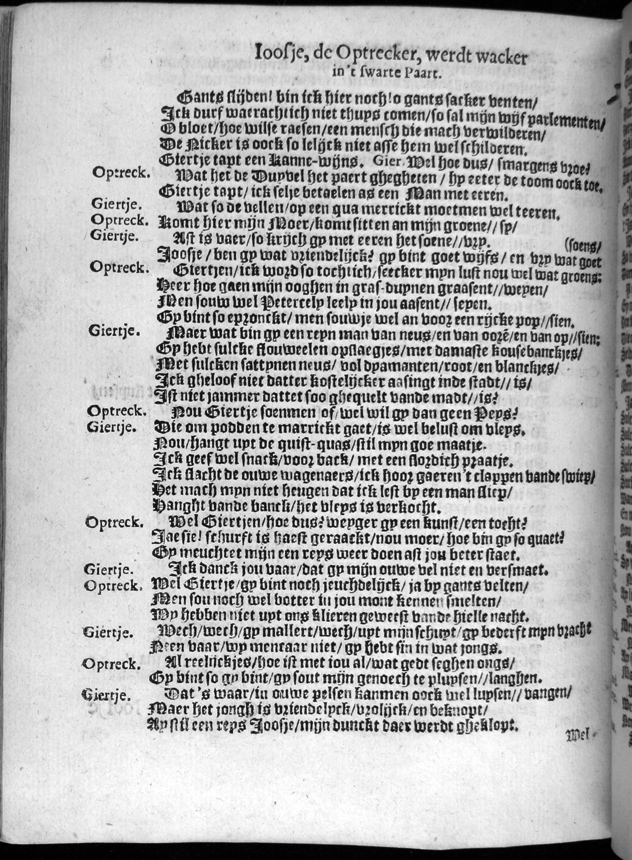 Ioosje, de Optrecker, werdt wacker
in't swarte Paart.
Gants slijden! bin ick hier noch! o gants sacker venten/
Ick durf waerachtich niet thups comen/ so sal mijn wijf parlementen/
O bloet/ hoe wilse raesen/ een mensch die mach verwilderen/
De Nicker is oock so lelijck niet asse hem wel schilderen.
Giertje tapt een Kanne-wijns. Gier. Wel hoe dus/ smargens vroe?
Optreck. Wat het de Duyvel het paert ghegheten / hy eeter de toom oock toe.
Giertje tapt/ ick selje betaelen as een Man met eeren.
Giertje. Wat so de vellen/ op een qua merrickt moetmen wel teeren.
Optreck. Komt hier mijn Moer/ komt sitten an mijn groene// sy/
Giertje. Ast is vaer/ so krijch gy met eeren het soene// vry. (soens/
Joosje / ben gy wat vriendelijck? gy bint goet wijfs/ en vry wat goet
Optreck. Giertjen/ ick word so tochtich/ seecker myn lust nou wel wat groens:
Heer hoe gaen mijn ooghen in gras-duynen graasent// weyen/
Men souw wel Petercely leely in jou aasent// seyen.
Gy bint so epronckt/ men souwje wel an voor een rijcke pop//sien.
Giertje. Maer wat bin gy een reyn man van neus/ en van oorē/ en van op//sien:
Gy hebt sulcke flouweelen opslaegjes/ met damaste kousebanckjes/
Met sulcken sattynen neus/ vol dyamanten/ root/ en blanckjes/
Ick gheloof niet datter kostelijcker aasingt inde stadt// is/
Ist niet jammer dattet soo ghequelt vande madt// is?
Optreck. Nou Giertje soenmen of wel wil gy dan geen Peys?
Giertje. Die om podden te marrickt gaet/ is wel belust om vleys.
Nou/ hangt upt de quist-quas/ stil myn goe maatje.
Ick geef wel snack/ voor back/ met een slordich praatje.
Ick slacht de ouwe wagenaers/ ick hoor gaeren't clappen vande swiep/
Het mach myn niet heugen dat ick lest by een man sliep/
Hanght vande banck/ het vleys is verkocht.
Optreck. Wel Giertjen/ hoe dus? weyger gy een kunst/ een tocht?
Jaesie! schurft is haest geraackt/ nou moer/ hoe bin gy so quaet?
Gy meuchtet mijn een reys weer doen ast jou beter staet.
Giertje. Ick danck jou vaar/ dat gy mijn ouwe vel niet en versmaet.
Optreck. Wel Giertje/ gy bint noch jeuchdelijck/ ja by gants velten/
Men sou noch wel botter in jou mont kennen smelten/
Wy hebben niet upt ons klieren geweest vande hielle nacht.
Giertje. Wech/ wech/ gy mallert/ wech/ upt mijn schuyt/ gy bederft myn vracht
Neen vaar/ wy mentaar niet/ gy hebt sin in wat jongs.
Optreck. Al reelickjes/ hoe ist met jou al/ wat gedt seghen ongs/
Gy bint so gy bint/ gy sout mijn genoech te pluysen// langhen.
Giertje. Dat's waar/ in ouwe pelsen kanmen oock wel luysen// vangen/
Maer het jongh is vriendelyck/ vrolijck/ en beknopt/
Ay stil een reys Joosje/ mijn dunckt daer werdt gheklopt.
Wel